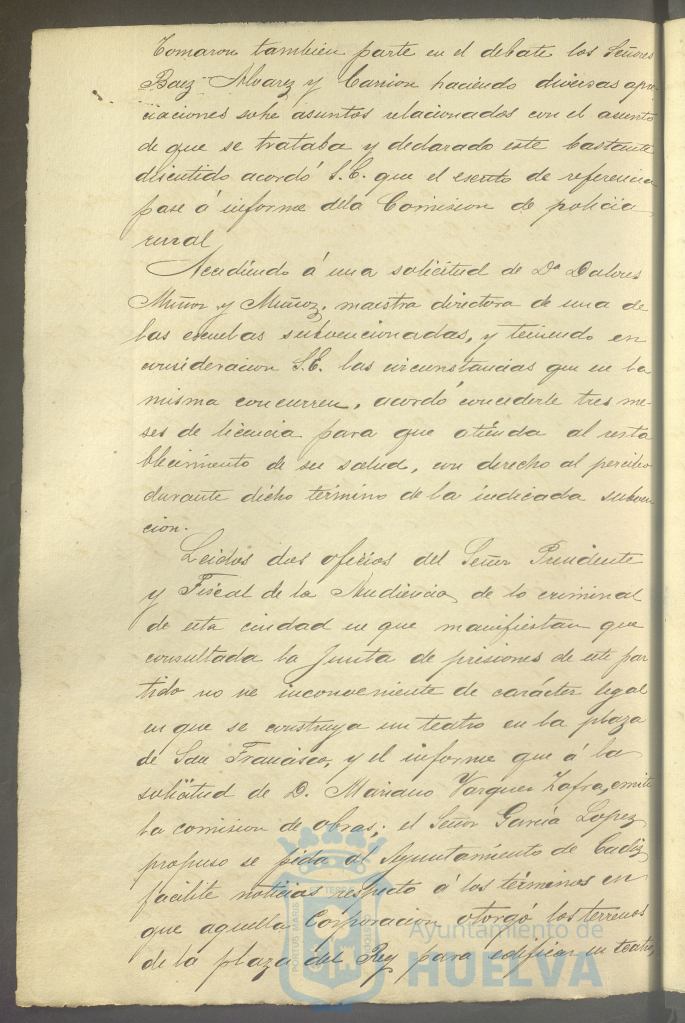 Tomaron tambien parte en el debate los Señores
Baez Alvarez y Carrion haciendo diversas apre
ciaciones sohe asuntos relacionados con el asunto
de que se trataba y declarado este bastante
discutido acordó S.E. que el escrito de referencia
pase á informe dela Comision de policia
rural
Accediendo á una solicitud de Dª Dolores
Muñoz y Muñoz, maestra directora de una de
las escuelas subvencionadas, y teniendo en
consideracion S.E. las circunstancias que en la
misma concurren, acordó concederle tres me-
ses de licencia para que atienda al resta
blecimiento de su salud, con derecho al percibo
durante dicho término de la indicada subven
cion.
Leidos dos oficios del Señor Presidente
y Fiscal de la Audiencia de lo criminal
de esta ciudad en que manifiestan que
consultada la Junta de prisiones de este par
tido no ve inconveniente de carácter legal
en que se construya un teatro en la plaza
de San Francisco, y el informe que á la
solicitud de D. Mariano Vazquez Zafra, emite
la comision de obras; el Señor Garcia Lopez
propuso se pida al Ayuntamiento de Cadiz
facilite noticias respecto á los términos en
que aquella Corporacion otorgó los terrenos
de la plaza del Rey para edificar un teatro,
PORTUS MARIS ET TERRAE CUSTODIA
Ayuntamiento de
HUELVA